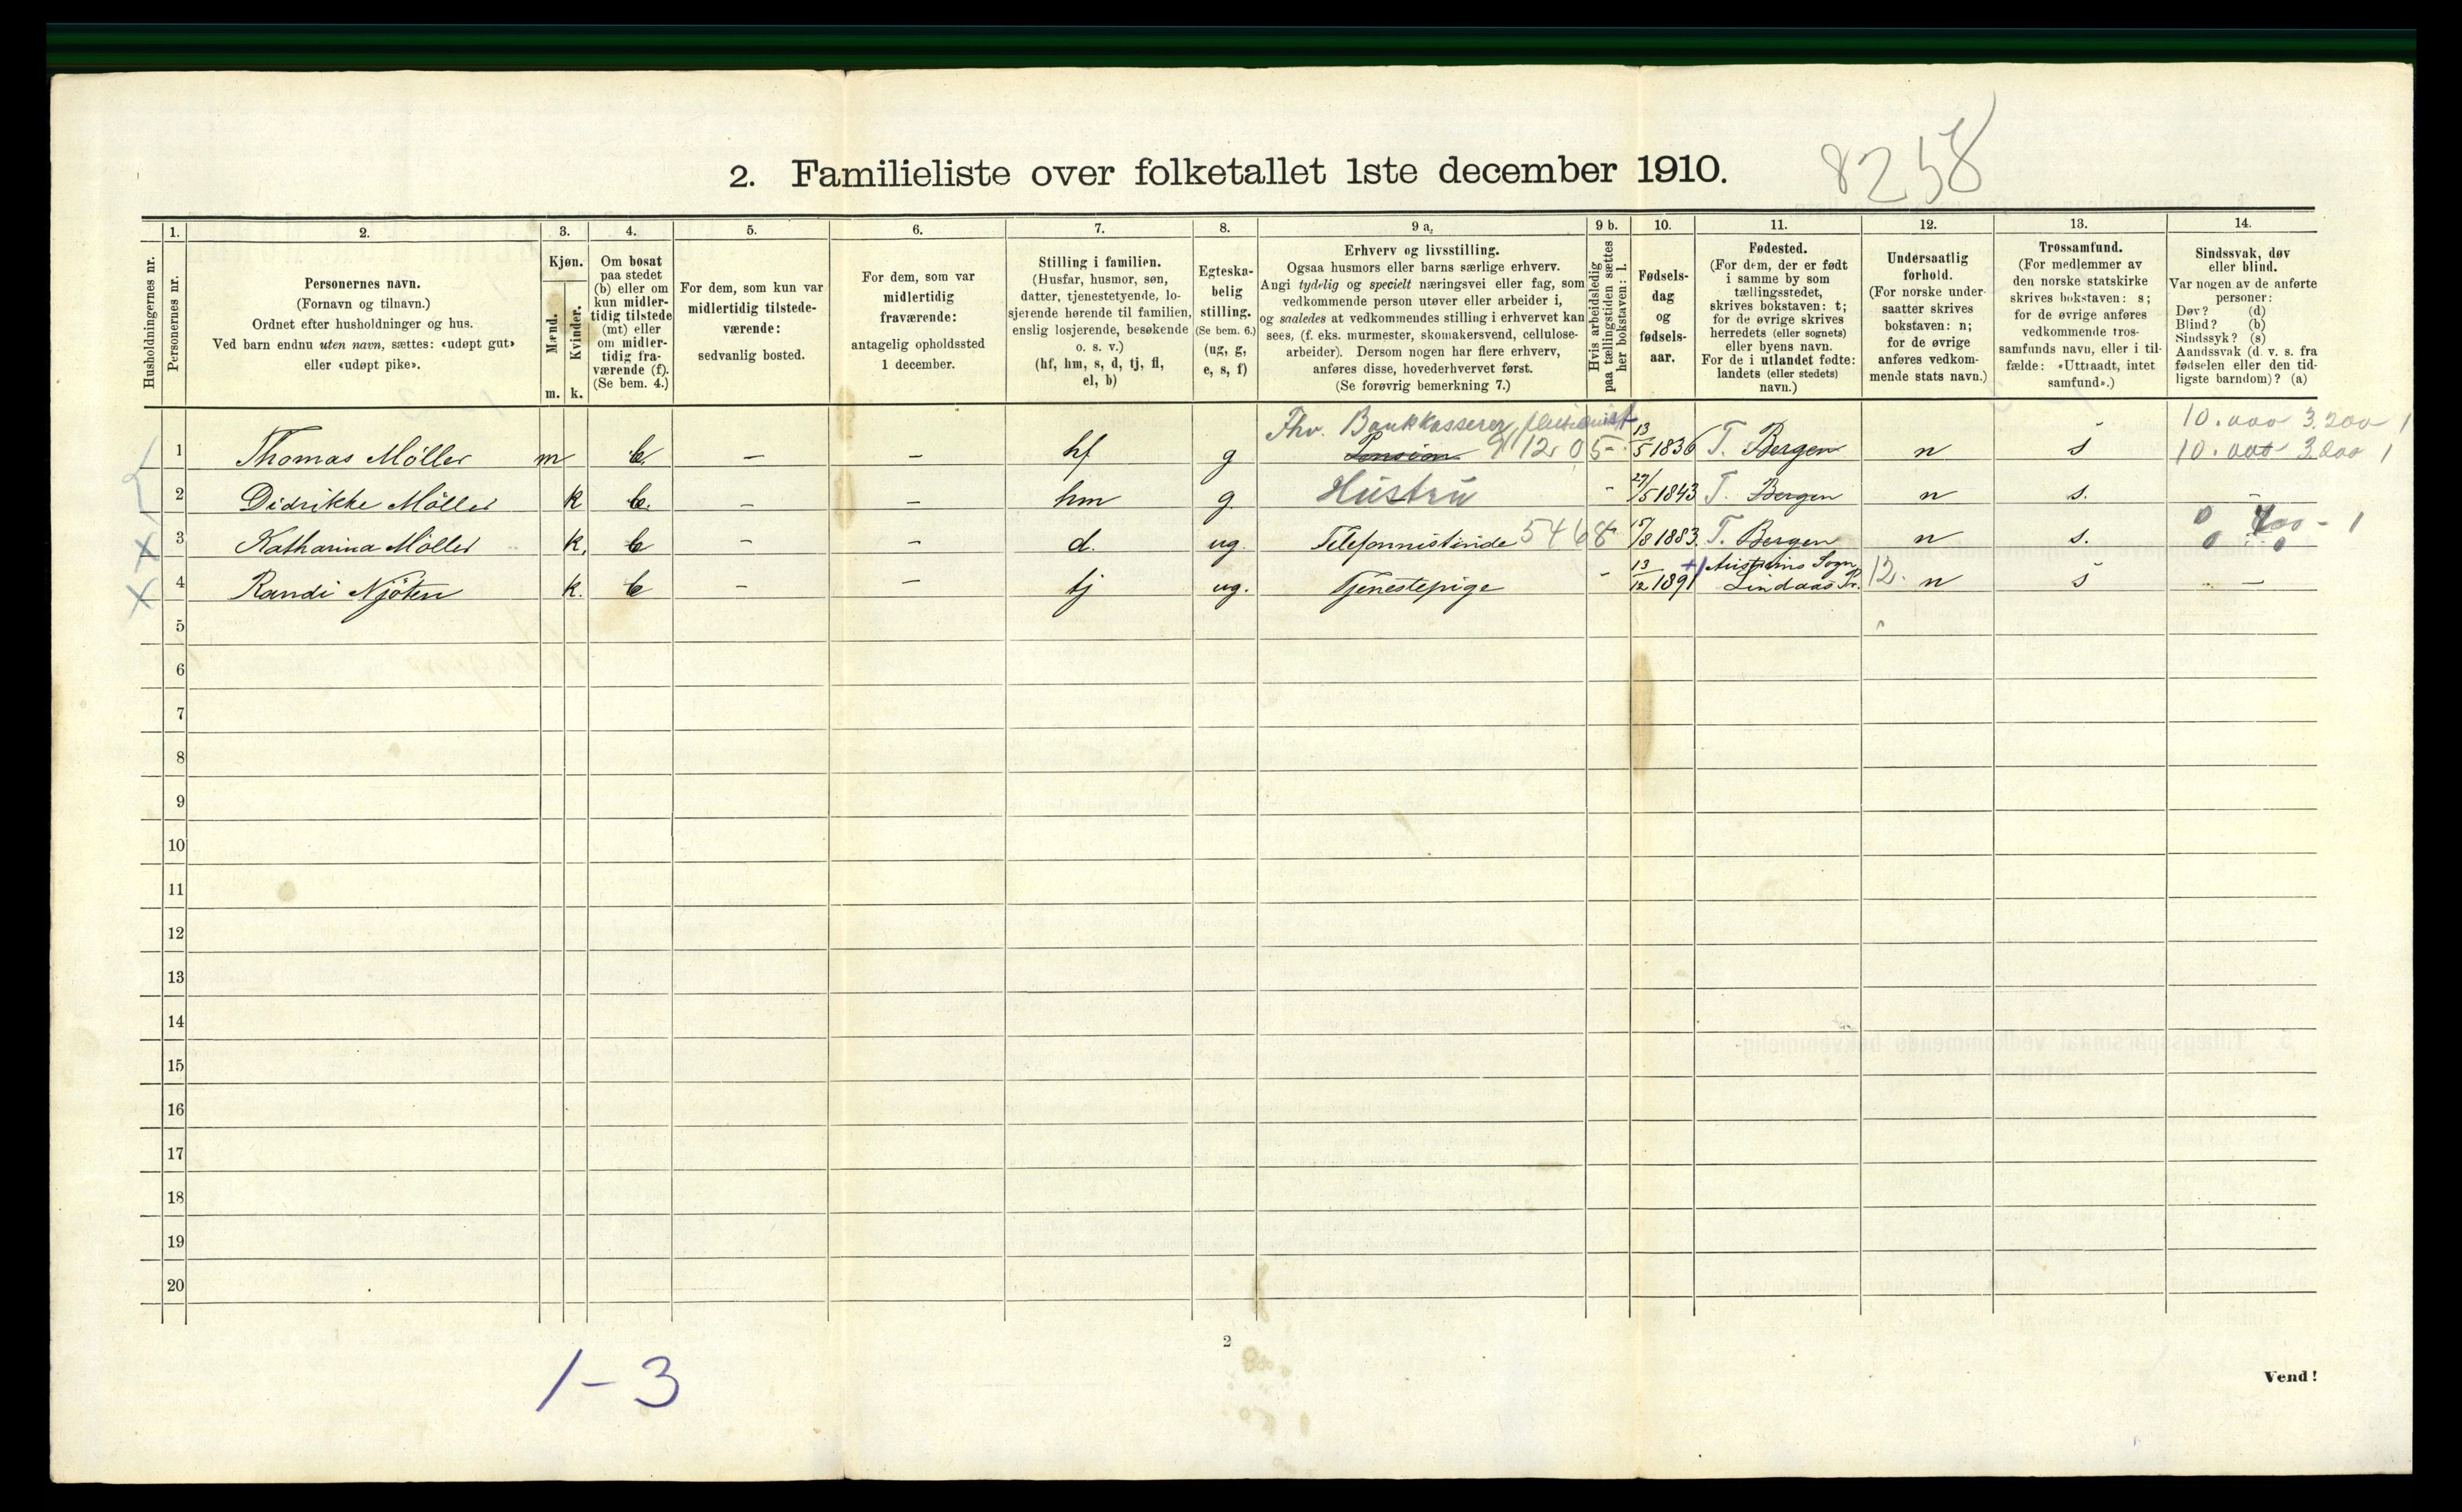 8258
2. Familieliste over folketallet 1ste december 1910.
1. 2. 3. 4. 5. 6. 7. 8. 9 a. 9 b. 10. 11. 12. 13. 14.
Husholdningernes nr.
Personernes nr.
Personernes navn.
(Fornavn og tilnavn.)
Ordnet efter husholdninger og hus.
Ved barn endnu uten navn, sættes: «udøpt gut»
eller «udøpt pike».
Kjøn.
Mænd.
Kvinder.
m. k.
Om bosat
paa stedet
(b) eller om
kun midler-
tidig tilstede
(mt) eller
om midler-
tidig fra-
værende (f).
(Se bem. 4.)
For dem, som kun var
midlertidig tilstede-
værende:
sedvanlig bosted.
For dem, som var
midlertidig
fraværende:
antagelig opholdssted
1 december.
Stilling i familien.
(Husfar, husmor, søn,
datter, tjenestetyende, lo-
sjerende hørende til familien,
enslig losjerende, besøkende
o. s. v.)
(hf, hm, s, d, tj, fl,
el, b)
Egteska-
belig
stilling.
(Se bem. 6.)
(ug, g,
e, s, f)
Erhverv og livsstilling.
Ogsaa husmors eller barns særlige erhverv.
Angi tydelig og specielt næringsvei eller fag, som
vedkommende person utøver eller arbeider i,
og saaledes at vedkommendes stilling i erhvervet kan
sees, (f. eks. murmester, skomakersvend, cellulose-
arbeider). Dersom nogen har flere erhverv,
anføres disse, hovederhvervet først.
(Se forøvrig bemerkning 7.)
Hvis arbeidsledig
paa tællingstiden sættes
her bokstaven: l.
Fødsels-
dag
og
fødsels-
aar.
Fødested.
(For dem, der er født
i samme by som
tællingsstedet,
skrives bokstaven: t;
for de øvrige skrives
herredets (eller sognets)
eller byens navn.
For de i utlandet fødte:
landets (eller stedets)
navn.)
Undersaatlig
forhold.
(For norske under-
saatter skrives
bokstaven: n;
for de øvrige
anføres vedkom-
mende stats navn.)
Trossamfund.
(For medlemmer av
den norske statskirke
skrives bokstaven: s;
for de øvrige anføres
vedkommende tros-
samfunds navn, eller i til-
fælde: «Uttraadt, intet
samfund».)
Sindssvak, døv
eller blind.
Var nogen av de anførte
personer:
Døv? (d)
Blind? (b)
Sindssyk? (s)
Aandssvak (d. v. s. fra
fødselen eller den tid-
ligste barndom)? (a)
Fhv. Bankkasserer, 10.000 3.200 1
1 Thomas Möller m b. – – hf g Pension 91205 – 13/5 1836 T. Bergen n s 10.000 3000 1
2 Didrikke Möller k b. – – hm g. Hustru – 27/5 1843 T. Bergen n s. –
3 Katharina Möller k. b – – d. ug. Telefonistinde 5468 15/8 1883. T. Bergen n s. 0 700 - 1
0 0
X 4 Randi Njöten k. b – – tj ug. Tjenestepige – 13/12 1891 Sogn Lindaas Pr. 12. n s –
5
6
7
8
9
10
11
12
13
14
15
16
17
18
19
20
2
1-3
Vend!